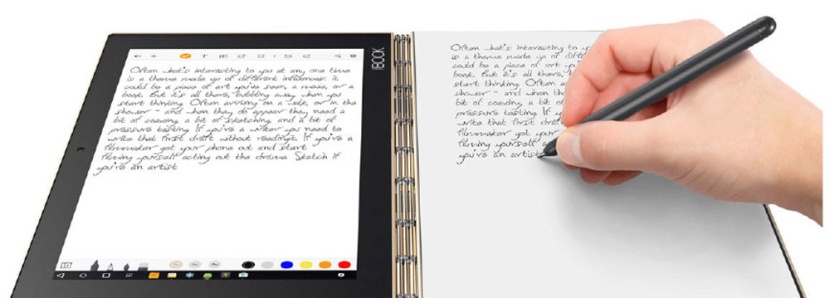 BOOK
Often what's interesting to you at any one time
is a theme made up of different influences. It
could be a piece of art you've seen, a movie, or a
book. But it's all there, bubbling away when you
start thinking. Often arriving on a walk, or in the
shower - and when they do appear they need a
bit of coaxing, a bit of sketching and a bit of
pressure testing. If you're a writer you need to
write that first draft without reading it. If you're a
filmmaker get your phone out and start
filming yourself acting out the drama. Sketch if
you're an artist
Often what's interesting to y
is a theme made up of
could be a piece of art y
book. But it's all there,
start thinking. Often a
shower - and when the
bit of coaxing, a bit o
pressure testing. If yo
write that first dr
filmmaker get your
filming yourself a
you're an artist